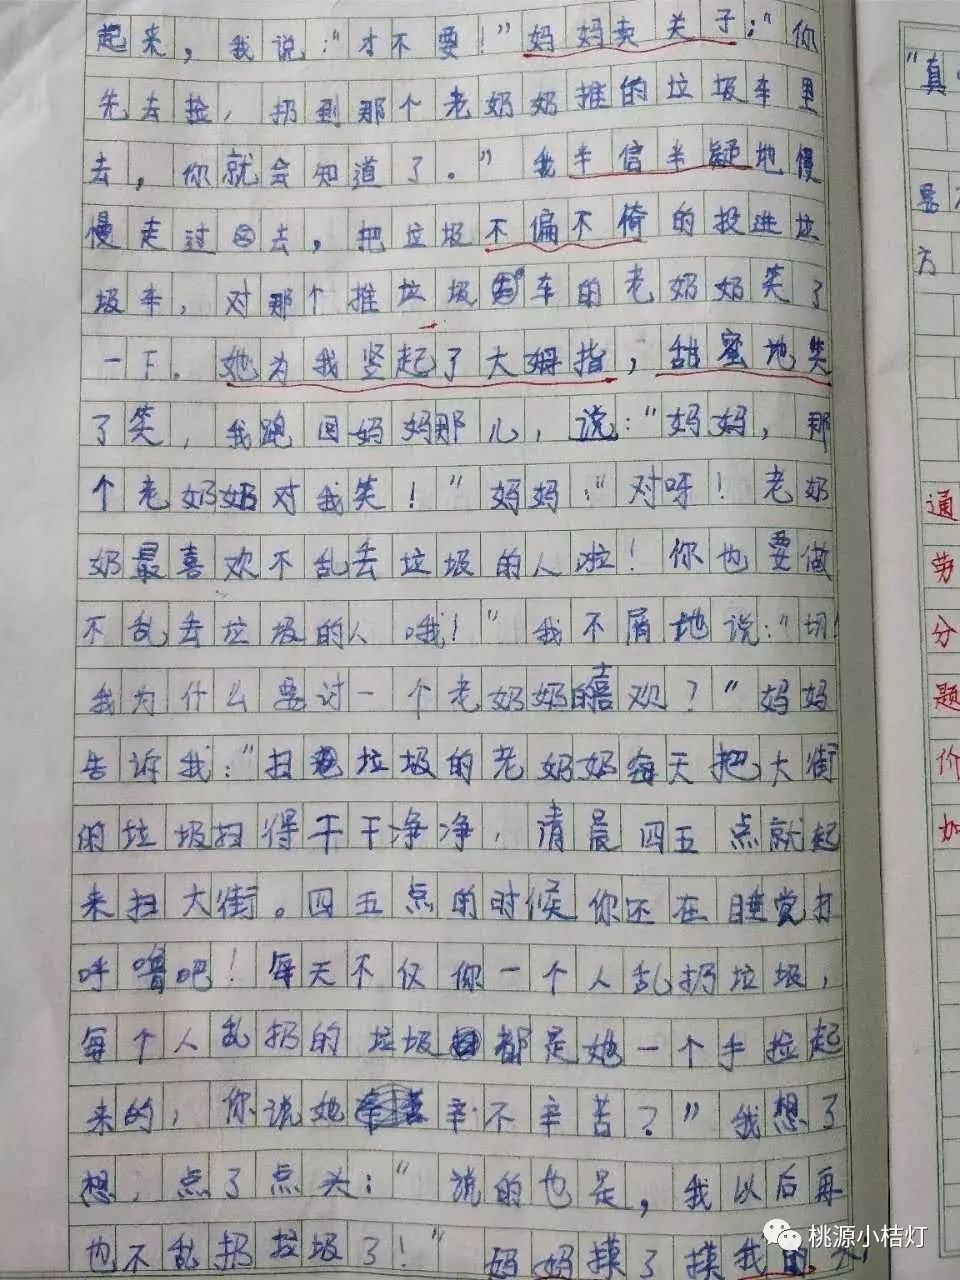 起来，我说：“才不要！”妈妈卖关子：“你
先去捡，扔到那个老奶奶推的垃圾车里
去，你就会知道了。”我半信半疑地慢
慢走过去，把垃圾不偏不倚的投进垃
圾车，对那个推垃圾车的老奶奶笑了
一下。她为我竖起了大姆指，甜蜜地笑
了笑，我跑回妈妈那儿，说：“妈妈，那
个老奶奶对我笑！”妈妈：“对呀！老奶
奶最喜欢不乱丢垃圾的人啦！你也要做
不乱丢垃圾的人哦！”我不屑地说：“切！
我为什么要讨一个老奶奶的喜欢？”妈妈
告诉我：“扫垃圾的老奶奶每天把大街
的垃圾扫得干干净净，清晨四五点就起
来扫大街。四五点的时候你还在睡觉打
呼噜吧！每天不仅你一个人乱扔垃圾，
每个人乱扔的垃圾都是她一个手捡起
来的，你说她辛不辛苦？”我想了
想，点了点头：“说的也是，我以后再
也不乱扔垃圾了！”妈妈摸了摸我的
“真
方
通
劳
分
题
价
如
桃源小桔灯